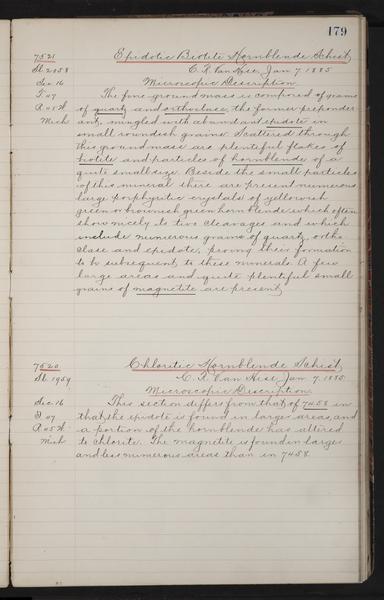 179
7521 Epidotic Biotite Hornblende Schist
Sl. 2058 C. R. Van Hise, Jan 7, 1885
Sec 16 Microscopic Description
T 47 The fine ground mass is composed of grains
R 45 W of quartz and orthoclase, the former preponder
Mich ant, mingled with abundant epidote in
small roundish grains. Scattered through
this ground mass are plentiful flakes of
biotite and particles of hornblende of a
quite small size. Beside the small particles
of this mineral there are present numerous
large porphyritic crystals of yellowish
green or brownish green hornblende which often
show nicely its two cleavages and which
include numerous grains of quartz, ortho
clase and epidote, proving their formation
to be subsequent to these minerals. A few
large areas and quite plentiful small
grains of magnetite are present.
7520 Chloritic Hornblende Schist
Sl. 1959 C. R. Van Hise, Jan 7, 1885
Microscopic Description
Sec. 16 This section differs from that of 7458 in
T 47 that the epidote is found in large areas, and
R 45 W a portion of the hornblende has altered
Mich to chlorite. The magnetite is found in larger
and less numerous areas than in 7458.